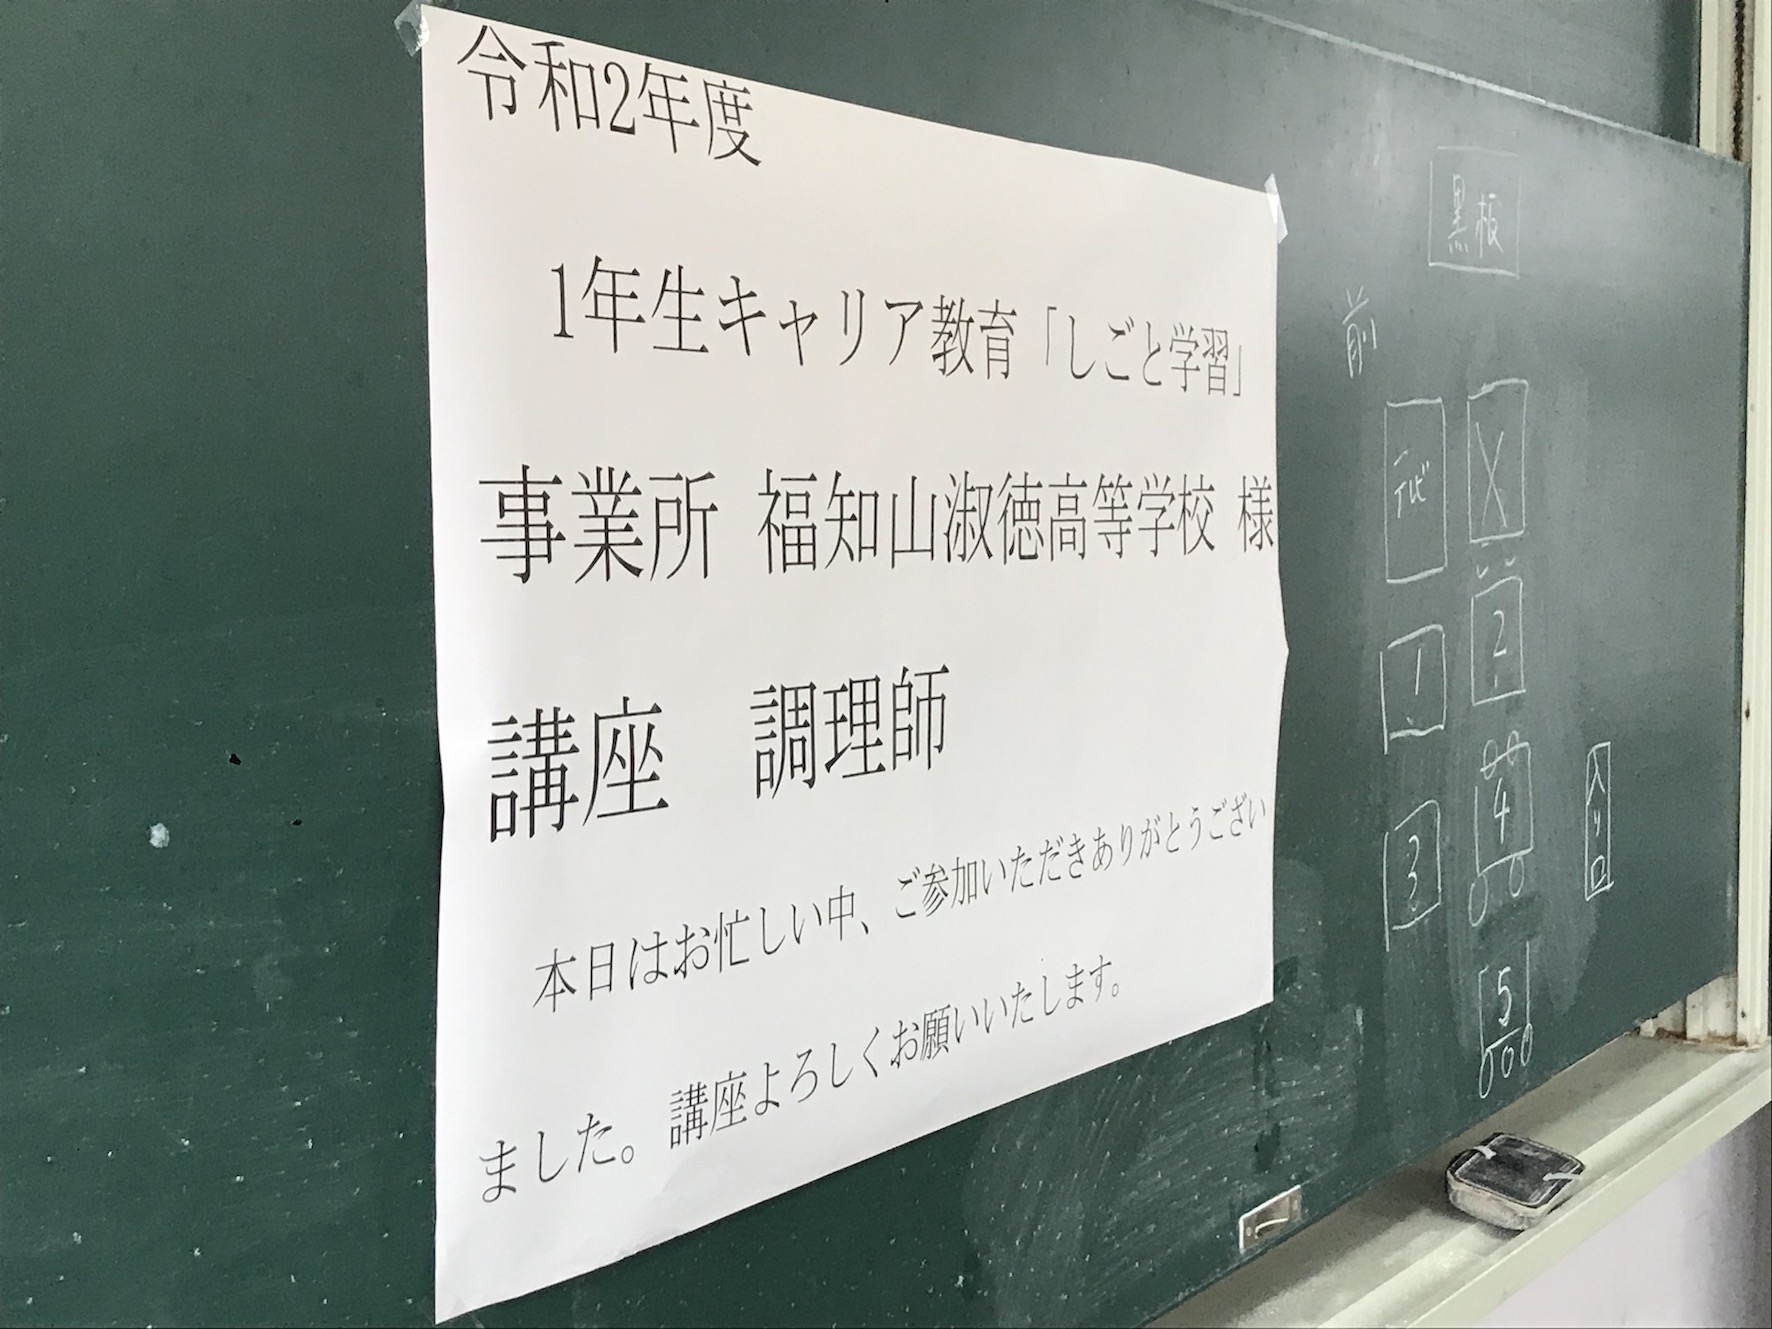 令和2年度
1年生キャリア教育「しごと学習」
事業所 福知山淑徳高等学校 様
講座 調理師
本日はお忙しい中、ご参加いただきありがとうござい
ました。講座よろしくお願いいたします。
黒板
前
テレビ
1
2
3
4
5
入り口